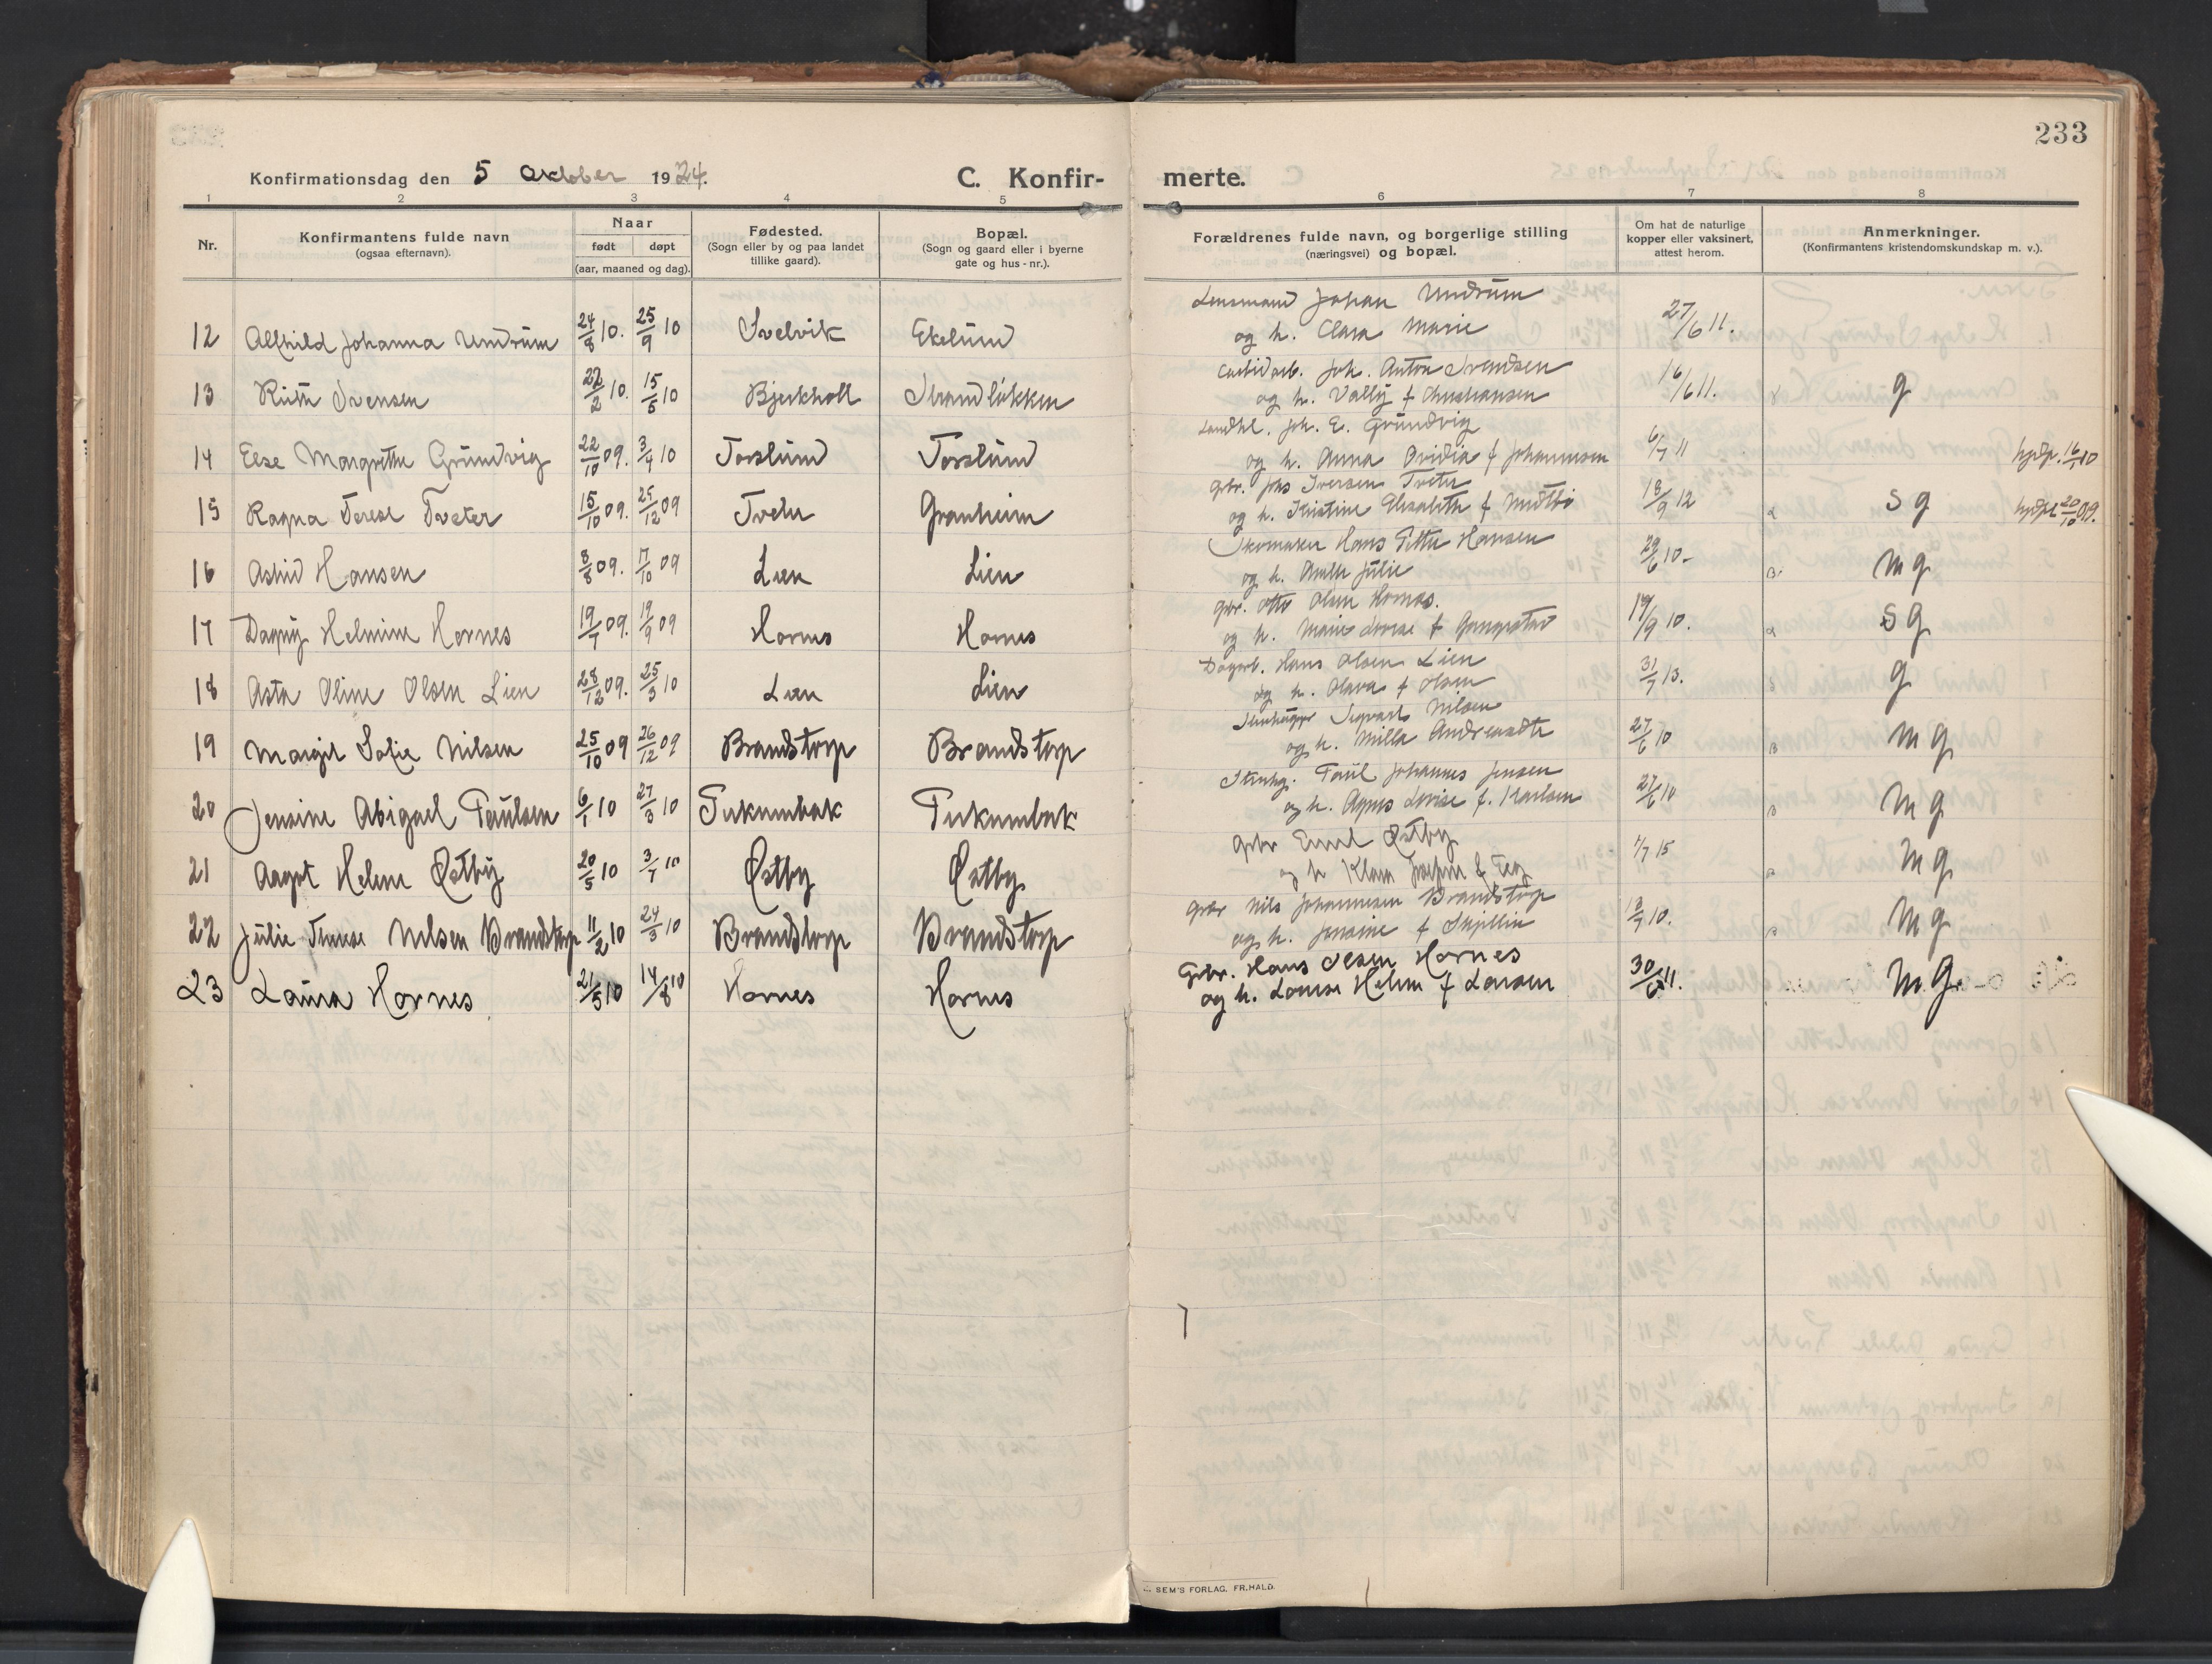 233
Konfirmationsdag den 5 Oktober 1924. C. Konfir- merte.
1 2 3 4 5 6 7 8
Nr. Konfirmantens fulde navn (ogsaa efternavn). Naar født døpt (aar, maaned og dag). Fødested. (Sogn eller by og paa landet tillike gaard). Bopæl. (Sogn og gaard eller i byerne gate og hus-nr.). Forældrenes fulde navn, og borgerlige stilling (næringsvei) og bopæl. Om hat de naturlige kopper eller vaksinert, attest herom. Anmerkninger. (Konfirmantens kristendomskundskap m. v.).
Lensmand Johan Undrum
12 Alfhild Johanna Undrum 24/8 10. 25/9 10 Svelvik Ekelund og h. Clara Marie 27/6 11.
Carbidarb. Joh. Anton Svendsen
13 Ruth Svensen 22/2 10. 15/5 10 Bjerkholt Strandløkken og h. Vally f Chushansen 16/6 11. g
Landhl. Joh. E. Grundvig
14 Else Margrethe Grundvig 22/10 09. 3/4 10 Torslund Torslund og h. Anna Ovidia f Johannesen 6/7 11 hjdp. 16/1 10
Gbr. Johs Iversen Tveter
15 Ragna Terese Tveter 15/10 09. 25/12 09 Tveter Granheim og h. Kristine Elisabeth f Midtbø 18/9 12 a S g hjdpt 20/10 09.
Skomaker Hans Petter Hansen
16 Astrid Hansen 8/8 09. 17/10 09 Lien Lien og h. Anette Julie 29/6 10- B. m g
Gbr. Otto Olsen Hornes.
17 Dagny Helmine Hornes 19/7 09. 19/9 09 Hornes Hornes og h. Marie Lovise f Gangestad 19/9 10. a S g
Dagarb. Hans Olsen Lien
18 Asta Oline Olsen Lien 28/12 09. 25/3 10 Lien Lien og h. Olava f Olsen 31/7 13. g
Stenhugger Sigvart Nilsen
19 Margit Sofie Nilsen 25/10 09 26/12 09 Brandstorp Brandstorp og h. Milla Andreasdtr 27/6 10 B m g
Stenhg. Paul Johannes Jensen
20 Jensine Abigael Paulsen 6/1 10 27/3 10 Tukumbak Tukumbak og h. Agnes Lovise f. Karlsen 27/6 10 B m g
Gbr Emil Østby
21 Aagot Helene Østby 20/5 10 3/7 10 Østby Østby og h Klara Josefine f 1/7 15 a m g
Gbr Nils Johannesen Brandstorp
22 Julie Therese Nilsen Brandstorp 11/2 10 24/3 10 Brandstorp Brandstorp og h. Jensine f Skjellin 18/7 10. B m g
Gbr. Hans Olsen Hornes
23 Laura Hornes 21/5 10 14/8 10 Hornes Hornes og h. Lovise Helene f Larsen 30/6 11. m g.
SEM'S FORLAG, FR.HALD.